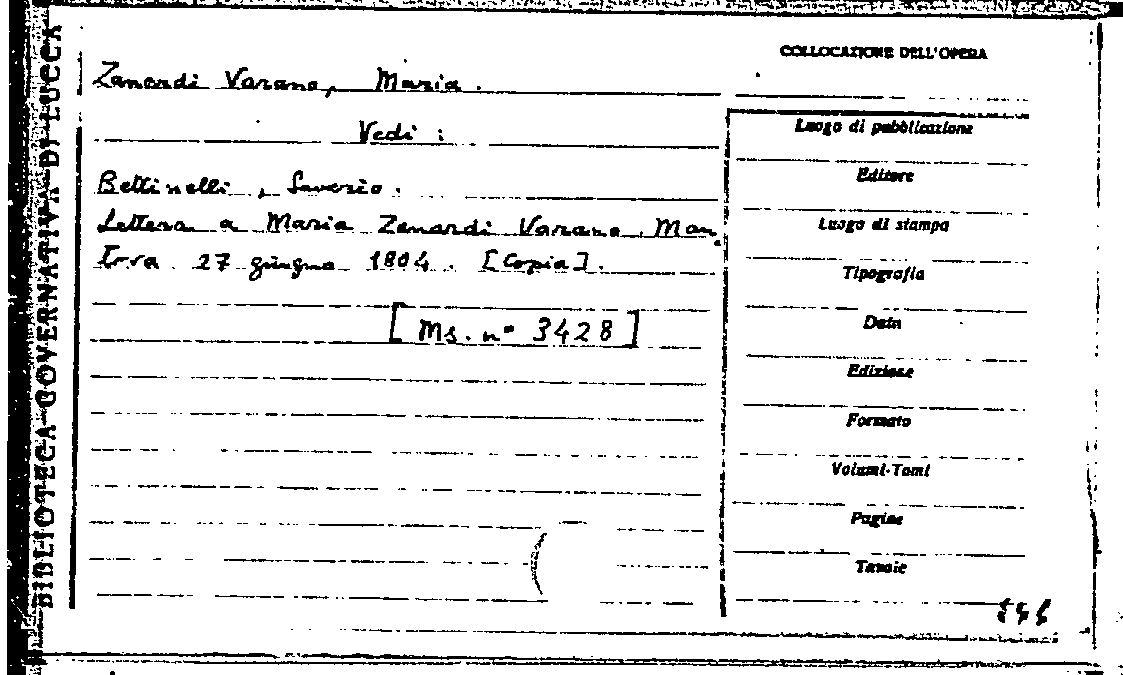 BIBLIOTECA GOVERNATIVA DI LUCCA
COLLOCAZIONE DELL'OPERA
Zanardi Varano, Maria.
Vedi:
Bettinelli, Saverio.
Lettera a Maria Zanardi Varano. Man-
tova 27 giugno 1804. [Copia].
[Ms. n° 3428]
Luogo di pubblicazione
Editore
Luogo di stampa
Tipografia
Data
Edizione
Formato
Volumi-Tomi
Pagine
Tavole